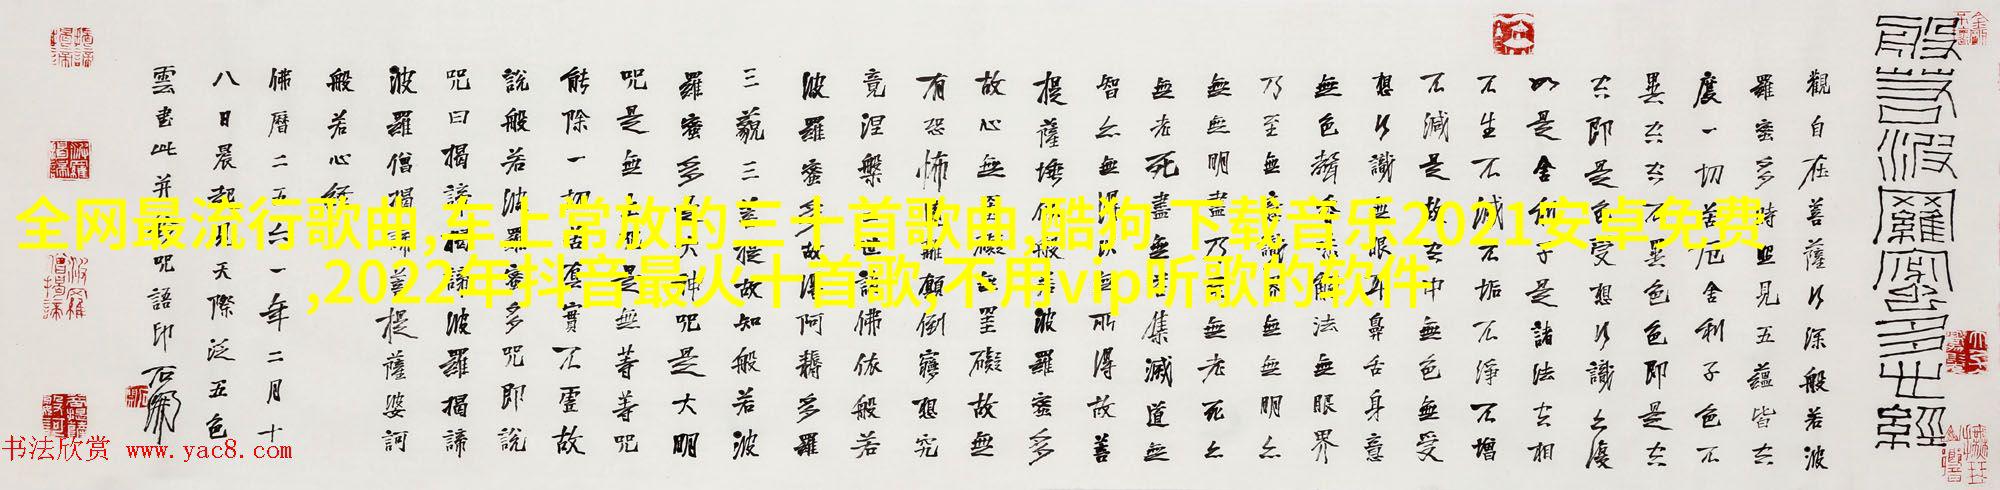 般若波羅蜜多心經
觀自在菩薩行深般若波
羅蜜多時照見五蘊皆空
度一切苦厄舍利子色不
異空空不異色色即是空
空即是色受想行識亦復
如是舍利子是諸法空相
不生不滅不垢不淨不增
不減是故空中無色無受
想行識無眼耳鼻舌身意
無色聲香味觸法無眼界
乃至無意識界無無明亦
無無明盡乃至無老死亦
無老死盡無苦集滅道無
智亦無得以無所得故菩
提薩埵依般若波羅蜜多
故心無罣礙無罣礙故無
有恐怖遠離顛倒夢想究
竟涅槃三世諸佛依般若
波羅蜜多故得阿耨多羅
三藐三菩提故知般若波
羅蜜多是大神咒是大明
咒是無上咒是無等等咒
能除一切苦真實不虛故
說般若波羅蜜多咒即說
咒曰揭諦揭諦波羅揭諦
波羅僧揭諦菩提薩婆訶
般若心經
佛曆二五六一年二月十
八日晨起見天際泛五色
雲書此并咒語印
全网最流行歌曲,车上常放的三十首歌曲,酷狗 下载音乐2021安卓免费
,2022年抖音最火十首歌,不用vip听歌的软件
书法欣赏 www.yac8.com